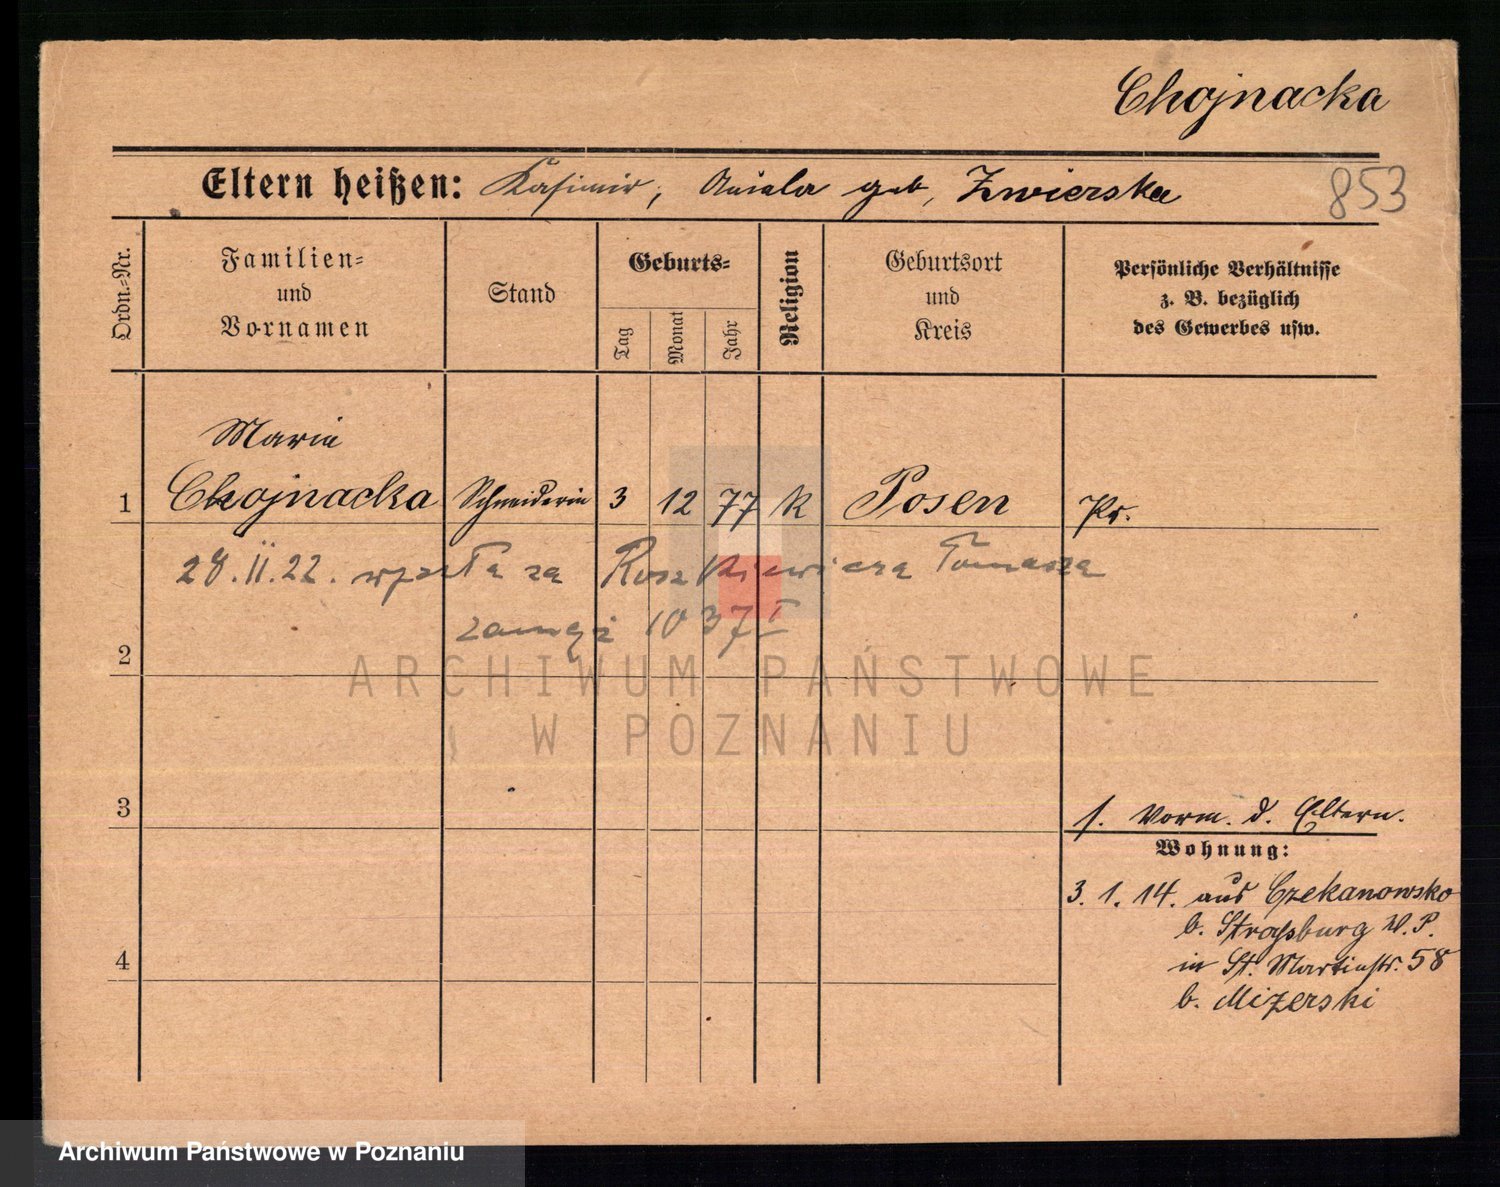 Chojnacka
Eltern heißen: Kasimir, Aniela geb. Zwierska
853
Ordn.-Nr.
Familien- und Vornamen
Stand
Geburts-
Tag
Monat
Jahr
Religion
Geburtsort und Kreis
Persönliche Verhältnisse
z. B. bezüglich
des Gewerbes usw.
Maria
1 Chojnacka Schneiderin 3 12 77 k Posen Pr.
28.II.22. wyszła za Roszkiewicza Tomasza
zamąż 1037 I
2
ARCHIWUM PAŃSTWOWE
W POZNANIU
3
s. Vorm. d. Eltern.
Wohnung:
3. 1. 14. aus Czekanowsko
b. Strassburg W. P.
4
in St. Martinstr. 58
b. Mizerski
Archiwum Państwowe w Poznaniu